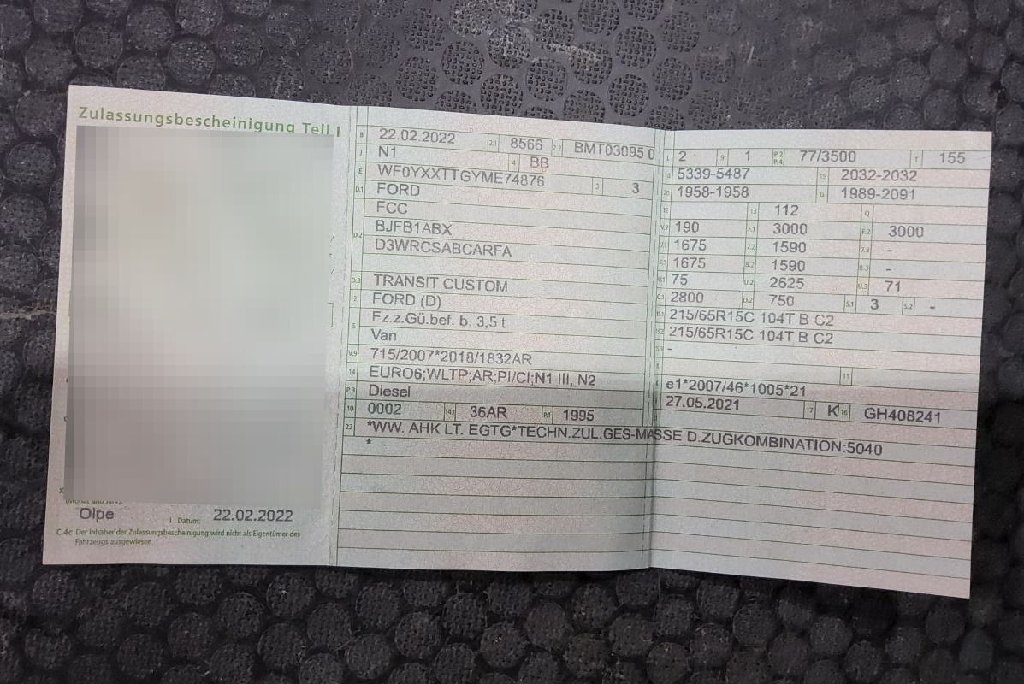 Zulassungsbescheinigung Teil I
Olpe
I Datum: 22.02.2022
C.4c Der Inhaber der Zulassungsbescheinigung wird nicht als Eigentümer des
Fahrzeugs ausgewiesen.
B 22.02.2022 2.1 8566 2.2 BMT03095 0
J N1 4 BB
E WF0YXXTTGYME74876 3 3
D.1 FORD
FCC
D.2 BJFB1ABX
D3WRCSABCARFA
D.3 TRANSIT CUSTOM
2 FORD (D)
5 Fz.z.Gü.bef. b. 3,5 t
Van
V.9 715/2007*2018/1832AR
14 EURO6;WLTP;AR;PI/CI;N1 III, N2
P.3 Diesel
10 0002 14.1 36AR P.1 1995
22 *WW. AHK LT. EGTG*TECHN.ZUL.GES-MASSE D.ZUGKOMBINATION:5040
*
L 2 9 1 P.2 P.4 77/3500 T 155
18 5339-5487 19 2032-2032
20 1958-1958 G 1989-2091
12 13 112 Q
V.7 190 F.1 3000 F.2 3000
7.1 1675 7.2 1590 7.3 -
8.1 1675 8.2 1590 8.3 -
U.1 75 U.2 2625 U.3 71
O.1 2800 O.2 750 S.1 3 S.2 -
15.1 215/65R15C 104T B C2
15.2 215/65R15C 104T B C2
15.3 -
11
K e1*2007/46*1005*21
6 27.05.2021 17 K 16 GH408241